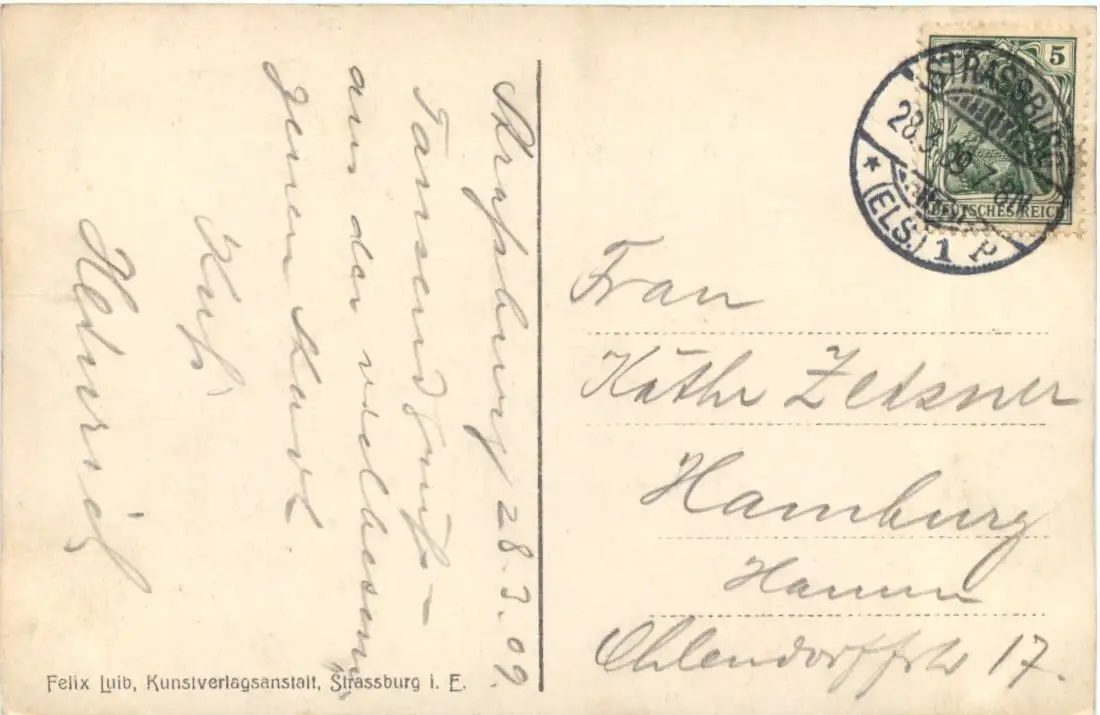 Straßburg 28.3.09.
Tausend Grüße
aus der vielbesung
genen Stadt
Kuß
Hedwig
Frau
Käthe Zeisner
Hamburg
Hamm
Ohlendorffstr 17.
5
STRASSBURG
28.3.09 7-8N
DEUTSCHES REICH
* (ELS.) 1 p
Felix Luib, Kunstverlagsanstalt, Strassburg i. E.